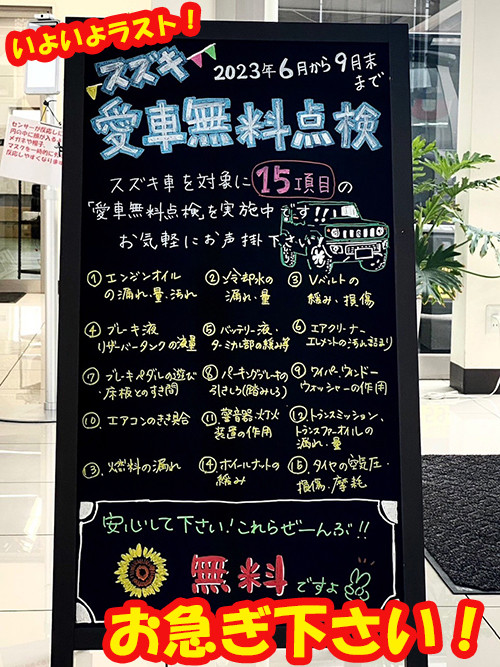 いよいよラスト！
スズキ
2023年6月から9月末
まで
愛車無料点検
センサーが反応しに
スズキ車を対象に15項目の
「愛車無料点検」を実施中です!!
お気軽にお声掛下さい!
①エンジンオイル
の漏れ・量・汚れ
②冷却水の
漏れ・量
③Vベルトの
緩み・損傷
④ブレーキ液
リザーバータンクの液量
⑤バッテリー液・
ターミナル部の緩み等
⑥エアクリーナー
エレメントの汚れ詰まり
⑦ブレーキペダルの遊び
・床板とのすき間
⑧パーキングブレーキの
引きしろ(踏みしろ)
⑨ワイパー、ウィンドー
ウォッシャーの作用
⑩エアコンのきき具合
⑪警音器・灯火
装置の作用
⑫トランスミッション、
トランスファーオイルの
漏れ・量
⑬燃料の漏れ
⑭ホイルナットの
緩み
⑮タイヤの空気圧・
損傷・摩耗
安心して下さい!これらぜーんぶ!!
無料ですよ
お急ぎ下さい！